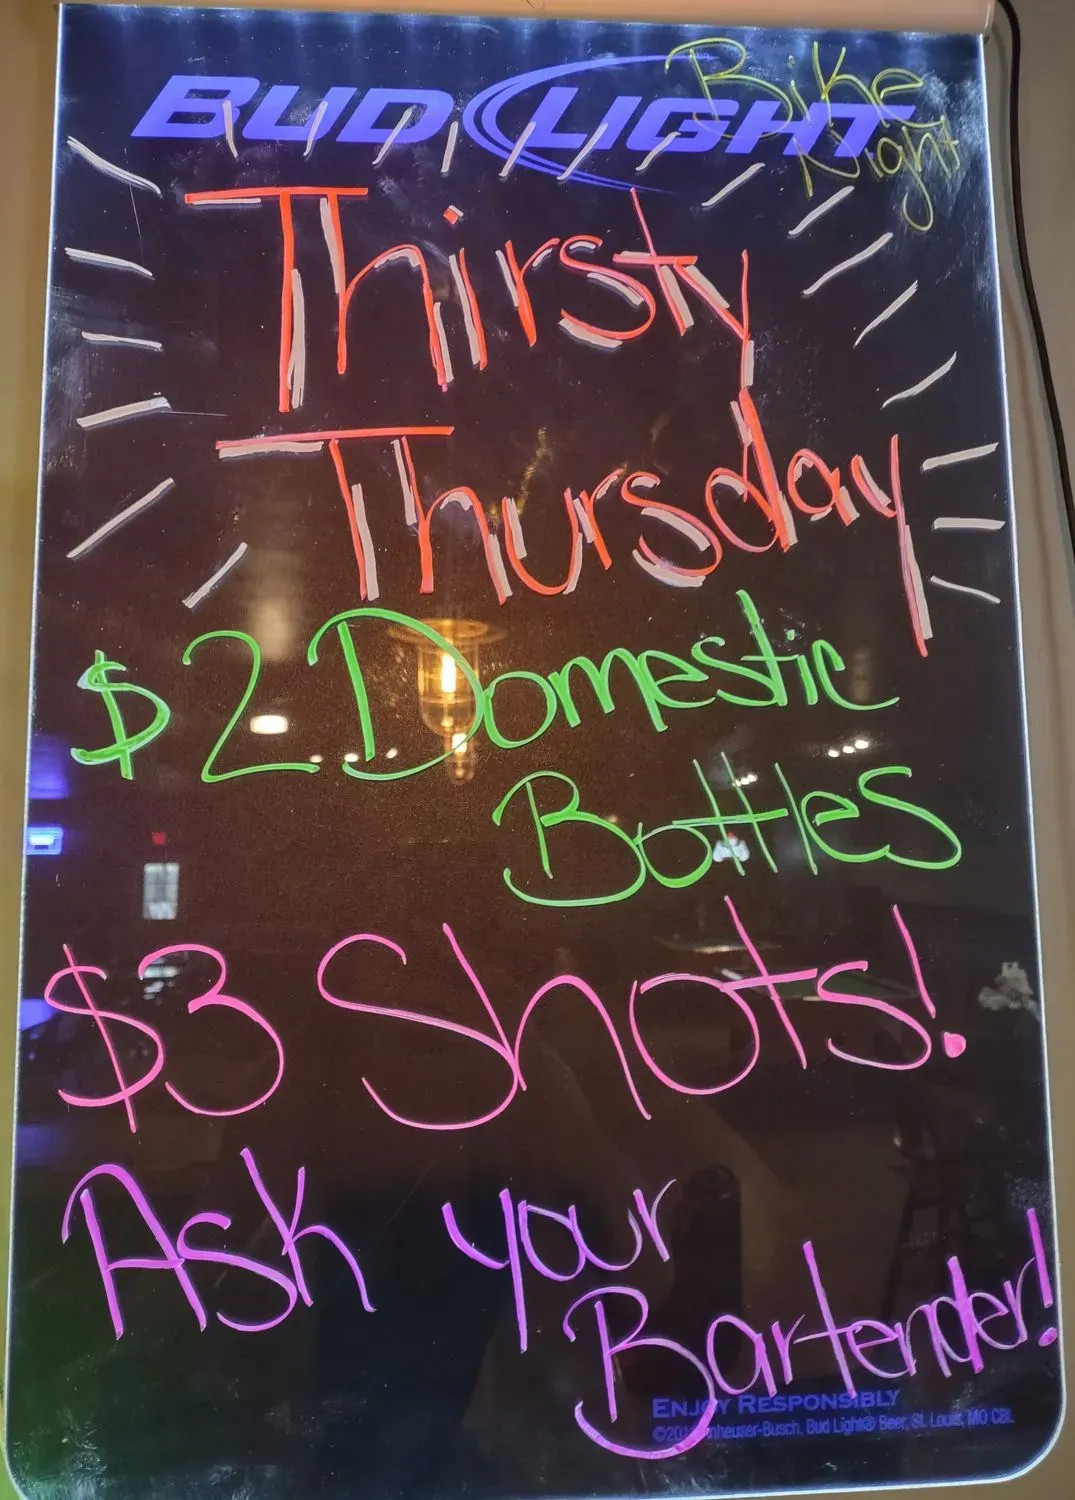 BUD LIGHT
Bike
Night
Thirsty
Thursday
$2 Domestic
Bottles
$3 Shots!
Ask your
Bartender!
ENJOY RESPONSIBLY
Anheuser-Busch, Bud Light® Beer, St. Louis, MO CBL